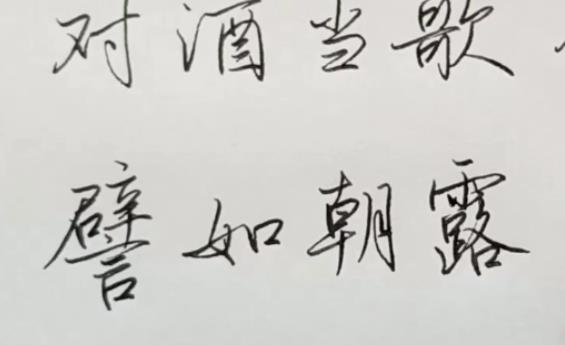 对酒当歌
譬如朝露